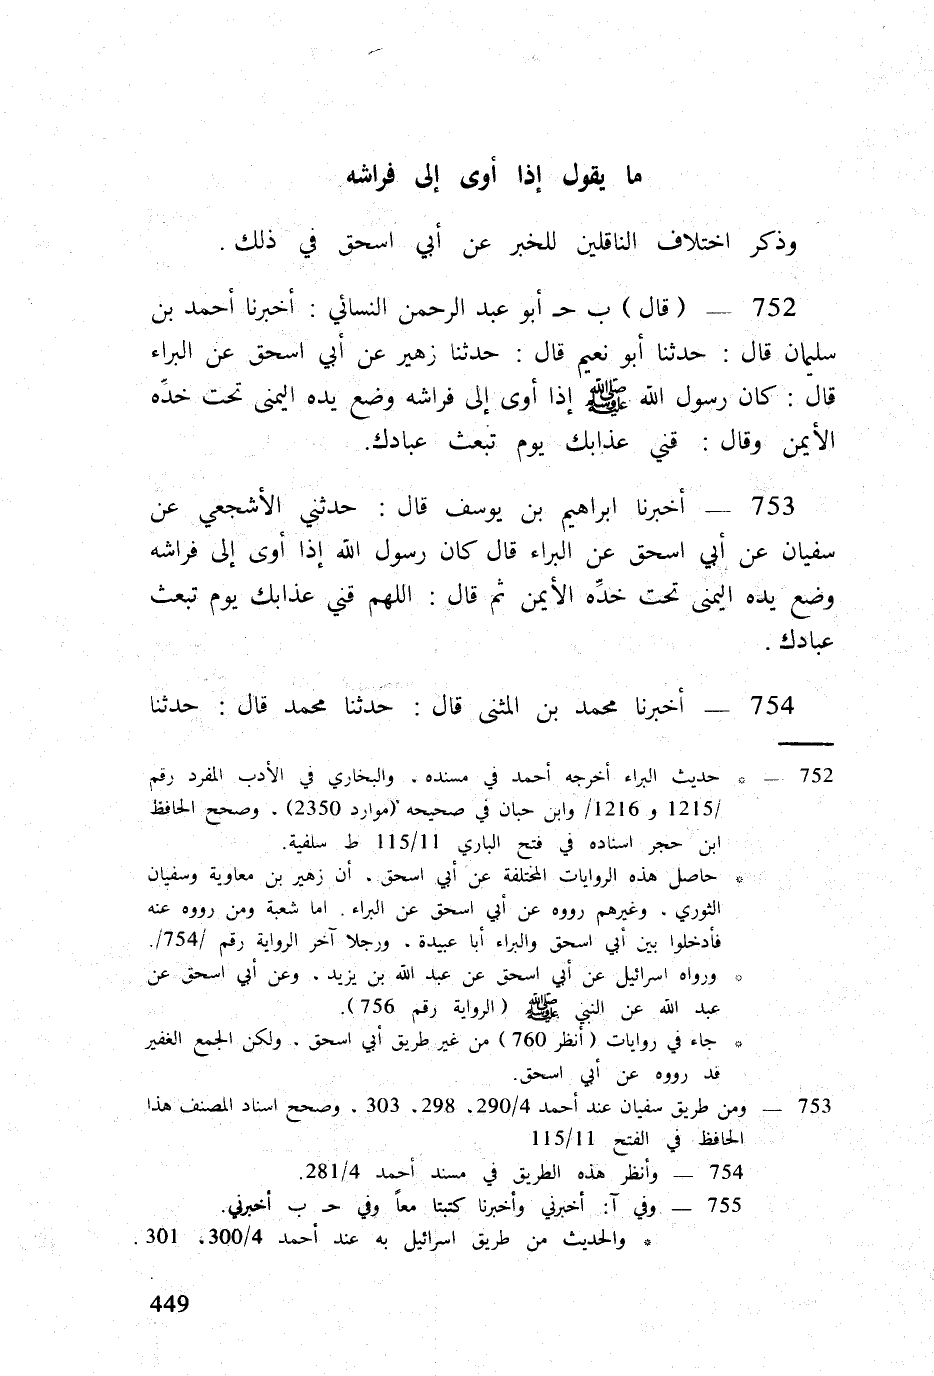 ما يقول إذا أوى إلى فراشه
وذكر اختلاف الناقلين للخبر عن أبي اسحق في ذلك .
752 — ( قال ) ب حـ أبو عبد الرحمن النسائي : أخبرنا أحمد بن
سليمان قال : حدثنا أبو نعيم قال : حدثنا زهير عن أبي اسحق عن البراء
قال : كان رسول الله ﷺ إذا أوى إلى فراشه وضع يده اليمنى تحت خدِّه
الأيمن وقال : قني عذابك يوم تبعث عبادك.
753 — أخبرنا ابراهيم بن يوسف قال : حدثني الأشجعي عن
سفيان عن أبي اسحق عن البراء قال كان رسول الله إذا أوى إلى فراشه
وضع يده اليمنى تحت خدِّه الأيمن ثم قال : اللهم قني عذابك يوم تبعث
عبادك .
754 — أخبرنا محمد بن المثنى قال : حدثنا محمد قال : حدثنا
752 — * حديث البراء أخرجه أحمد في مسنده . والبخاري في الأدب المفرد رقم
/1215 و 1216/ وابن حبان في صحيحه (موارد 2350) . وصحح الحافظ
ابن حجر اسناده في فتح الباري 115/11 ط سلفية.
* حاصل هذه الروايات المختلفة عن أبي اسحق . أن زهير بن معاوية وسفيان
الثوري . وغيرهم رووه عن أبي اسحق عن البراء . اما شعبة ومن رووه عنه
فأدخلوا بين أبي اسحق والبراء أبا عبيدة . ورجلا آخر الرواية رقم /754/.
* ورواه اسرائيل عن أبي اسحق عن عبد الله بن يزيد . وعن أبي اسحق عن
عبد الله عن النبي ﷺ ( الرواية رقم 756).
* جاء في روايات ( أنظر 760 ) من غير طريق أبي اسحق . ولكن الجمع الغفير
قد رووه عن أبي اسحق.
753 — ومن طريق سفيان عند أحمد 290/4. 298. 303 . وصحح اسناد المصنف هذا
الحافظ في الفتح 115/11
754 — وأنظر هذه الطريق في مسند أحمد 281/4.
755 — وفي آ: أخبرني وأخبرنا كتبتا معاً وفي حـ ب أخبرني.
* والحديث من طريق اسرائيل به عند أحمد 300/4، 301 .
449